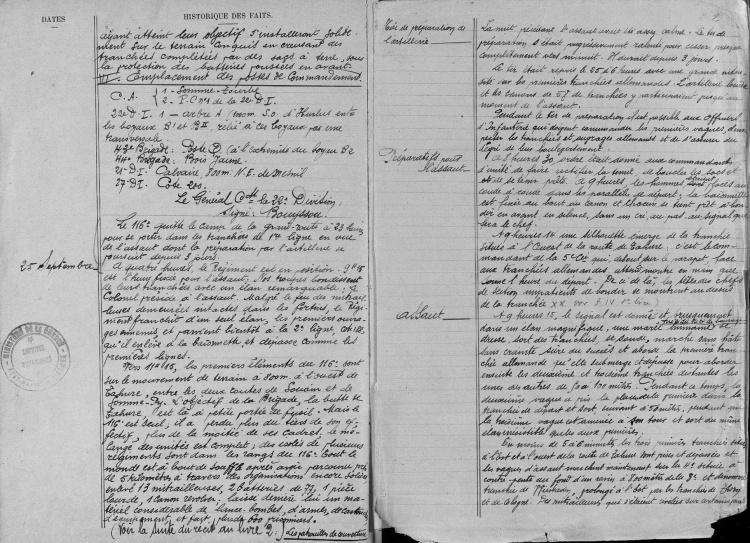 DATES
HISTORIQUE DES FAITS.
ayant atteint leur objectif s'installeront solide-
ment sur le terrain conquis en creusant des
tranchées complétées par des sacs à terre, sous
la protection des batteries poussées en avant
III. Emplacement des postes de Commandement.
C.A. 1 - Somme-Tourbe
2 - P.C. n°1 de la 22e D.I.
22e D.I. 1 - arbre A (100m S.O. d'Hurlus entre
les boyaux B1 et BII, relié à ces boyaux par une
transversale
43e Brigade: Poste P (à l'extrémité du boyau B2
44e Brigade: Bois Jaune
21e D.I. Calvaire 800m N.E. de Mesnil
27 D.I. Côte 20
Le Général Cdt la 22e Division,
Signé: Bouyssou
Le 116e quitte le camp de la Grand-Route à 23 heures
pour se porter dans les tranchées de 1re ligne en vue
de l'assaut dont la préparation par l'artillerie se
poursuit depuis 3 jours.
25 Septembre
A quatre heures, le Régiment est en position; 9h15
est l'heure fixée pour l'assaut: Nos troupes bondissent
de leurs tranchées avec un élan remarquable; le
Colonel préside à l'assaut. Malgré le feu des mitrail-
leuses demeurées intactes dans les fortins, le Régi-
ment franchit d'un seul élan, les premiers ouvra-
ges ennemis et parvient bientôt à la 2e ligne,
qu'il enlève à la baïonnette et dépasse comme les
premières lignes.
Vers 11h15, les premiers éléments du 116e sont
sur le mouvement de terrain à 800m. à l'ouest de
Tahure, entre les deux routes de Souain et de
Somme-Py. L'objectif de la Brigade, la butte de
Tahure, est là à petite portée de fusil. Mais le
116e est seul, il a perdu plus du tiers de son ef-
fectif, plus de la moitié de ses cadres, le mé-
lange des unités est complet; des isolés de plusieurs
régiments sont dans les rangs du 116e. Tout le
monde est à bout de souffle après avoir parcouru près
de 5 kilomètres à travers des organisations encore solides
enlevé 13 mitrailleuses, 2 batteries de 77, 1 pièce
lourde, 1 canon revolver, laissé derrière lui un ma-
tériel considérable de lance-bombes, d'armes, de cartouches
d'équipement et fait plus de 600 prisonniers.
(Voir la suite du récit au livre 2.) Les patrouilles de couverture
Tir de préparation de
l'artillerie
La nuit précédant l'assaut avait été assez calme. Le tir de
préparation s'était progressivement ralenti pour cesser presque
complètement vers minuit. Il durait depuis 3 jours.
Le tir était repris le 25 à 6 heures avec une grande intensité
sur les premières tranchées allemandes. L'artillerie lourde
et les canons de 58 de tranchées y participaient jusqu'au
moment de l'assaut.
Pendant le tir de préparation il est possible aux officiers
d'Infanterie qui doivent commander les premières vagues, d'exa-
miner les tranchées et ouvrages allemands et de s'assurer du
degré de leur bouleversement.
Préparatifs pour
l'assaut
A 8 heures 30, ordre était donné aux commandants
d'unité de faire rectifier la tenue, de boucler les sacs et
de se tenir prêts. A 9 heures les hommes sont placés au
coude à coude dans les parallèles de départ; la baïonnette
est fixée au bout du canon et chacun se tient prêt à bon-
dir en avant en silence, sans un cri, au signal que
fera le chef.
A 9 heures 14 une silhouette émerge de la tranchée
située à l'Ouest de la route de Tahure; c'est le com-
mandant de la 5e Cie qui, debout sur le parapet, face
aux tranchées allemandes, attend montre en main que
sonne l'heure du départ. De ci de là, les têtes des chefs
de section impatients de bondir se montrent au dessus
de la tranchée
Assaut
A 9 heures 15, le signal est donné et brusquement
dans un élan magnifique, une marée humaine se
dresse, sort des tranchées, se soude, marche sans hâte
sans crainte sûre du succès et aborde la première tran-
chée allemande qu'elle submerge et dépasse pour aborder
ensuite les deuxième et troisième tranchées distantes les
unes des autres de 60 à 100 mètres. Pendant ce temps, la
deuxième vague a pris la place de la première dans la
tranchée de départ et sort, suivant à 50 mètres, pendant que
la troisième vague est amenée à son tour et sort du même
élan irrésistible que les deux premières.
En moins de 5 à 6 minutes les trois premières tranchées situées
à l'Est et à l'Ouest de la route de Tahure sont prises et dépassées et
les vagues d'assaut marchent maintenant sur la 4e située à
contre-pente au fond d'un ravin à 800 mètres de la 3e et dénommée
tranchée de Munich, prolongée à l'Est par les tranchées de
et de Cologne. Des mitrailleuses qui s'étaient